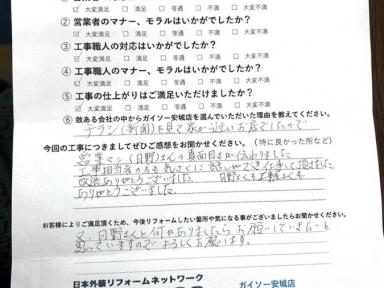 □ 大変満足 □ 満足 □ 普通 □ 不満 □ 大変不満
② 営業者のマナー、モラルはいかがでしたか?
□ 大変満足 □ 満足 □ 普通 □ 不満 □ 大変不満
③ 工事職人の対応はいかがでしたか?
□ 大変満足 □ 満足 □ 普通 □ 不満 □ 大変不満
④ 工事職人のマナー、モラルはいかがでしたか?
□ 大変満足 □ 満足 □ 普通 □ 不満 □ 大変不満
⑤ 工事の仕上がりはご満足いただけましたか?
□ 大変満足 □ 満足 □ 普通 □ 不満 □ 大変不満
⑥ 数ある会社の中からガイソー安城店を選んでいただいた理由を教えてください。
チラシ(新聞)を見て家から近いお店でしたので
今回の工事につきましてぜひご感想をお聞かせください。(特に良かった所など)
営業マン(日野)さんの真面目さが伝わりました
工事担当の方も気さくに話しができ工事して頂きました
ありがとうございました 日野さんも
ありがとうございました
お客様によりご満足頂くため、今後リフォームしたい箇所や気になる事がございましたらお聞かせください。
又、日野さんと何かありましたらお願いしていきたいと
思っていますのでよろしくお願いします。
日本外装リフォームネットワーク
ガイソー安城店